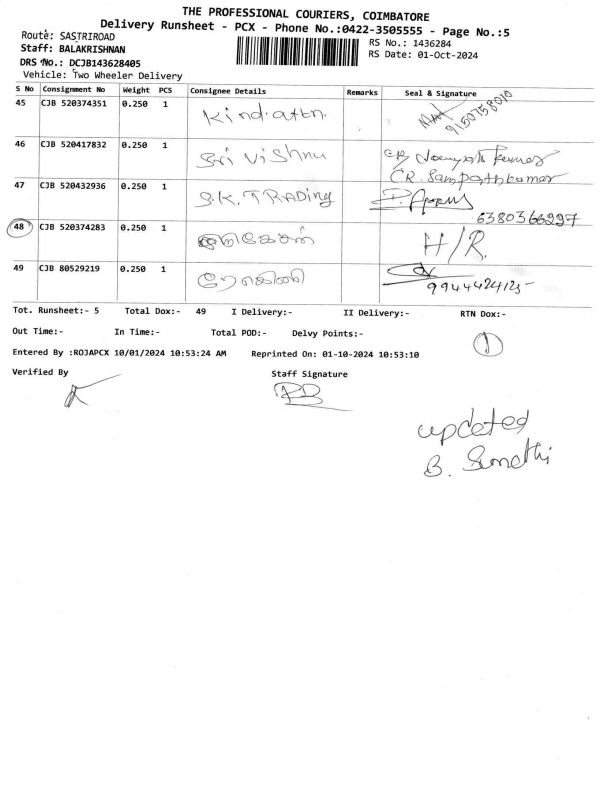 THE PROFESSIONAL COURIERS, COIMBATORE
Delivery Runsheet - PCX - Phone No.:0422-3505555 - Page No.:5
Route: SASTRIROAD
RS No.: 1436284
Staff: BALAKRISHNAN
RS Date: 01-Oct-2024
DRS No.: DCJB143628405
Vehicle: Two Wheeler Delivery
S No Consignment No Weight PCS Consignee Details Remarks Seal & Signature
45 CJB 520374351 0.250 1
9150758010
46 CJB 520417832 0.250 1 Sri Vishnu
CR. Sampathkumar
47 CJB 520432936 0.250 1 S.K. TRADING
6380366297
48 CJB 520374283 0.250 1 H/R.
49 CJB 80529219 0.250 1
9944424125
Tot. Runsheet:- 5 Total Dox:- 49 I Delivery:- II Delivery:- RTN Dox:-
Out Time:- In Time:- Total POD:- Delvy Points:-
1
Entered By :ROJAPCX 10/01/2024 10:53:24 AM Reprinted On: 01-10-2024 10:53:10
Verified By Staff Signature
updated
B. Sumathi